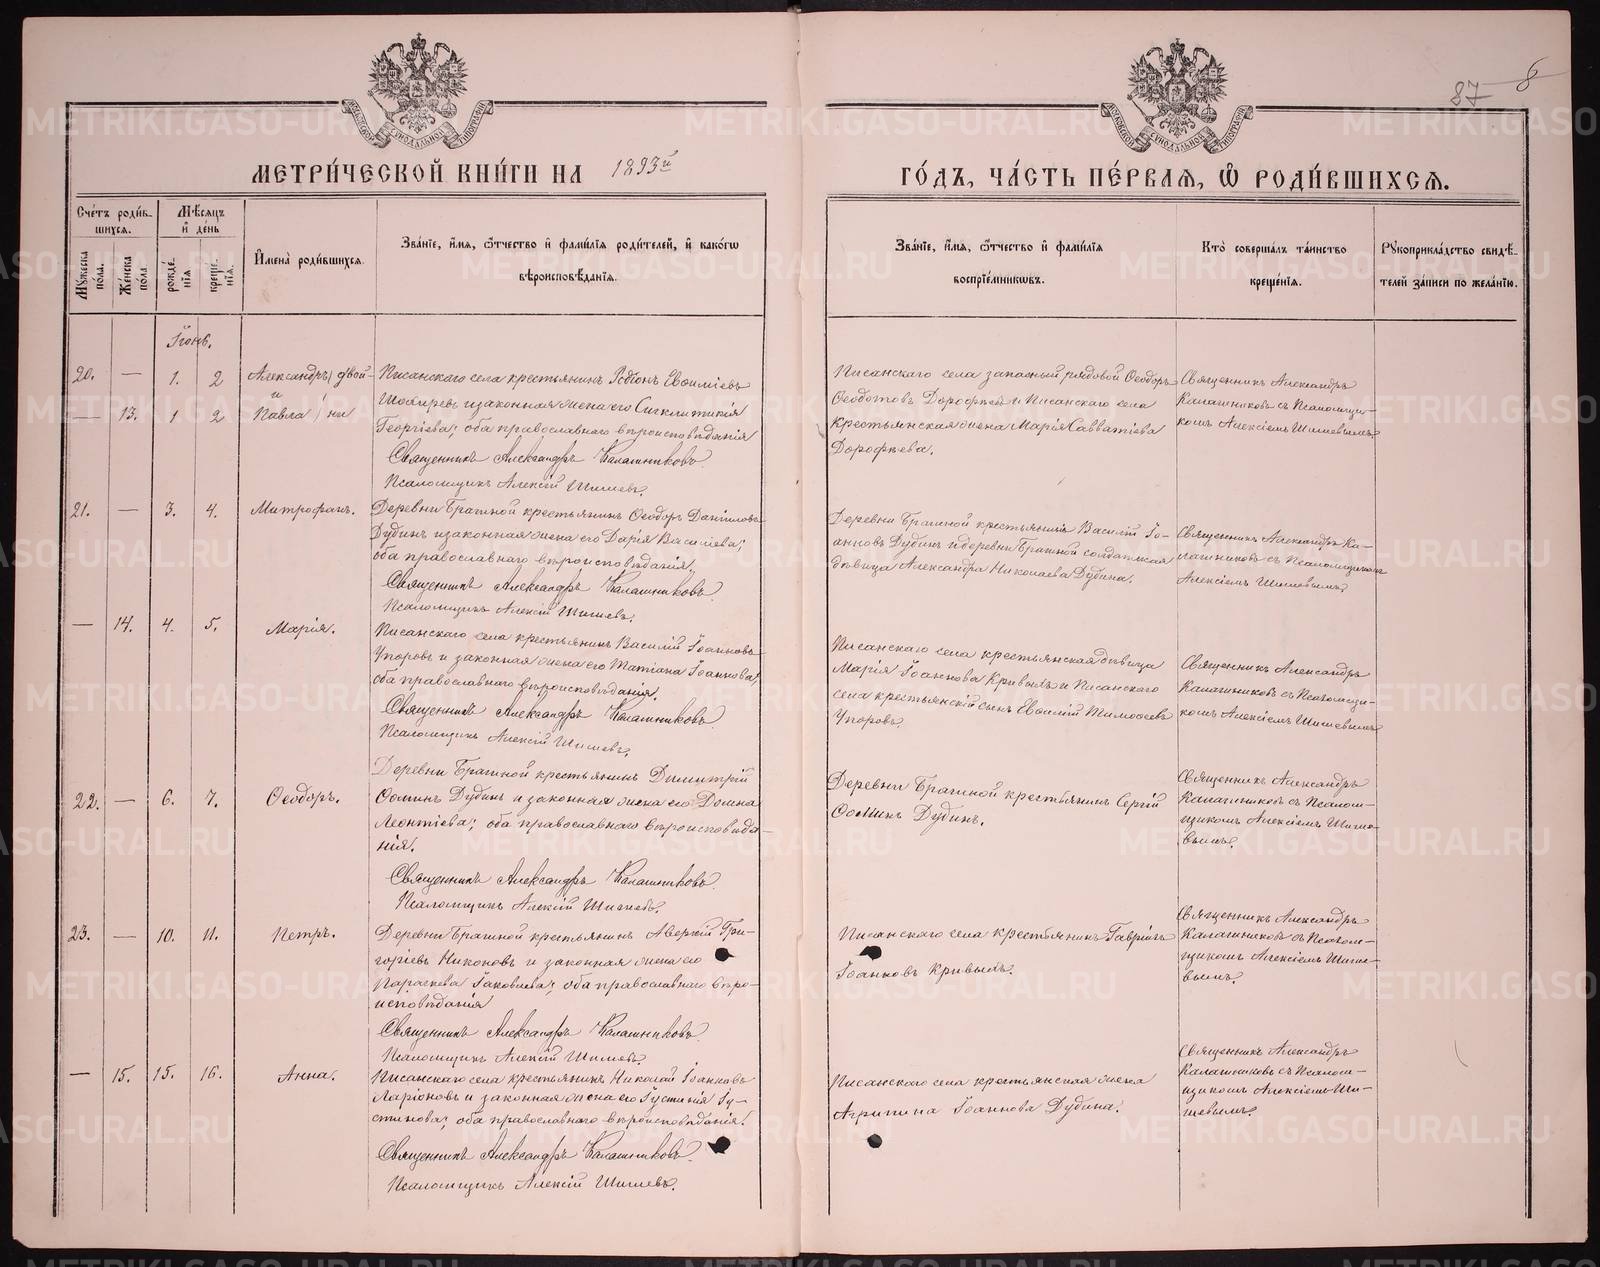 87 6
МОСКОВСКОЙ СѴНОДАЛЬНОЙ ТИПОГРАФІИ
МОСКОВСКОЙ СѴНОДАЛЬНОЙ ТИПОГРАФІИ
МЕТРИ́ЧЕСКОЙ КНИ́ГИ НА 1893й
ГО́ДЪ, ЧА́СТЬ ПЕ́РВАЯ, Ѡ РОДИ́ВШИХСЯ.
Сче́тъ роди́в-
шихся.
Мѣ́сяцъ
и҆ де́нь
Мꙋ́жеска по́ла.
Же́нска по́ла.
рожде́-
нїѧ
креще́-
нїѧ.
И҆мена̀ роди́вшихся.
Зва́нїе, и҆́мя, ѻ҆́тчество и҆ фами́лїя роди́телей, и҆ како́гѡ
вѣроисповѣ́данїя.
Зва́нїе, и҆́мя, ѻ҆́тчество и҆ фами́лїя
воспрїе́мникѡвъ.
Кто̀ соверша́лъ та́инство
креще́нїя.
Рꙋкоприкла́дство свидѣ́-
телей за́писи по жела́нїю.
Іюнь.
20. — 1. 2 Александръ двой-
и
— 13. 1 2 Павла ни
Писанскаго села крестьянинъ Родіонъ Евѳиміевъ
и законная жена его Сигклитикія
Георгіева; оба православнаго вѣроисповѣданія
Священникъ Александръ Калашниковъ.
Псаломщикъ Алексій Шишевъ.
Писанскаго села запасный рядовой Ѳеодоръ
Ѳедотовъ Дорофѣевъ и Писанскаго села
крестьянская жена Марія Савватіева
Дорофѣева.
Священникъ Александръ
Калашниковъ съ Псаломщи-
комъ Алексіемъ Шишевымъ.
21. — 3. 4. Митрофанъ.
Деревни Брагиной крестьянинъ Ѳеодоръ Даніиловъ
Дубинъ и законная жена его Дарія Васильева;
оба православнаго вѣроисповѣданія.
Священникъ Александръ Калашниковъ
Псаломщикъ Алексій Шишевъ.
Деревни Брагиной крестьянинъ Василій Іо-
анновъ Дубинъ и деревни Брагиной солдатская
дѣвица Александра Николаева Дубина.
Священникъ Александръ Ка-
лашниковъ съ Псаломщикомъ
Алексіемъ Шишевымъ.
— 14. 4. 5. Марія.
Писанскаго села крестьянинъ Василій Іоанновъ
Упоровъ и законная жена его Татіана Іоаннова;
оба православнаго вѣроисповѣданія.
Священникъ Александръ Калашниковъ
Псаломщикъ Алексій Шишевъ.
Писанскаго села крестьянская дѣвица
Марія Іоаннова Кривыхъ и Писанскаго
села крестьянскій сынъ Евѳимій Тимоѳеевъ
Упоровъ.
Священникъ Александръ
Калашниковъ съ Псаломщи-
комъ Алексіемъ Шишевымъ
22. — 6. 7. Ѳеодоръ.
Деревни Брагиной крестьянинъ Димитрій
Ѳоминъ Дубинъ и законная жена его Домна
Леонтіева; оба православнаго вѣроисповѣда-
нія.
Священникъ Александръ Калашниковъ.
Псаломщикъ Алексій Шишевъ.
Деревни Брагиной крестьянинъ Сергій
Ѳоминъ Дубинъ.
Священникъ Александръ
Калашниковъ съ Псалом-
щикомъ Алексіемъ Шише-
вымъ.
23. — 10. 11. Петръ.
Деревни Брагиной крестьянинъ Аверкій Гри-
горіевъ Никоновъ и законная жена его
Параскева Іаковлева; оба православнаго вѣро-
исповѣданія
Священникъ Александръ Калашниковъ.
Псаломщикъ Алексій Шишевъ.
Писанскаго села крестьянинъ Гавріилъ
Іоанновъ Кривыхъ.
Священникъ Александръ
Калашниковъ съ Псалом-
щикомъ Алексіемъ Шише-
вымъ.
— 15. 15. 16. Анна.
Писанскаго села крестьянинъ Николай Іоанновъ
Ларіоновъ и законная жена его Іустинія Іу-
стинова; оба православнаго вѣроисповѣданія.
Священникъ Александръ Калашниковъ.
Псаломщикъ Алексій Шишевъ.
Писанскаго села крестьянская жена
Агрипина Іоаннова Дубина.
Священникъ Александръ
Калашниковъ съ Псалом-
щикомъ Алексіемъ Ши-
шевымъ.
METRIKI.GASO-URAL.RU